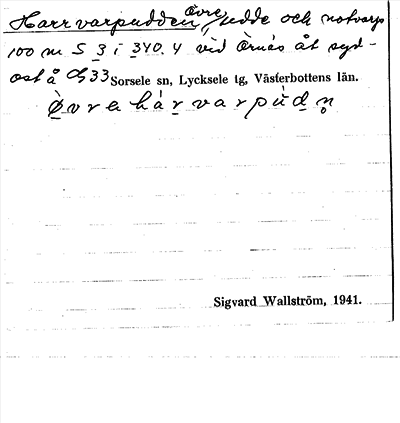 Harrvarpudden, Övre, udde och notvarp
100 m S 3 i 340.4 vid Örnäs åt syd-
ost å 33 Sorsele sn, Lycksele tg, Västerbottens län.
Ø̀vrehárvarpùdn̥
Sigvard Wallström, 1941.